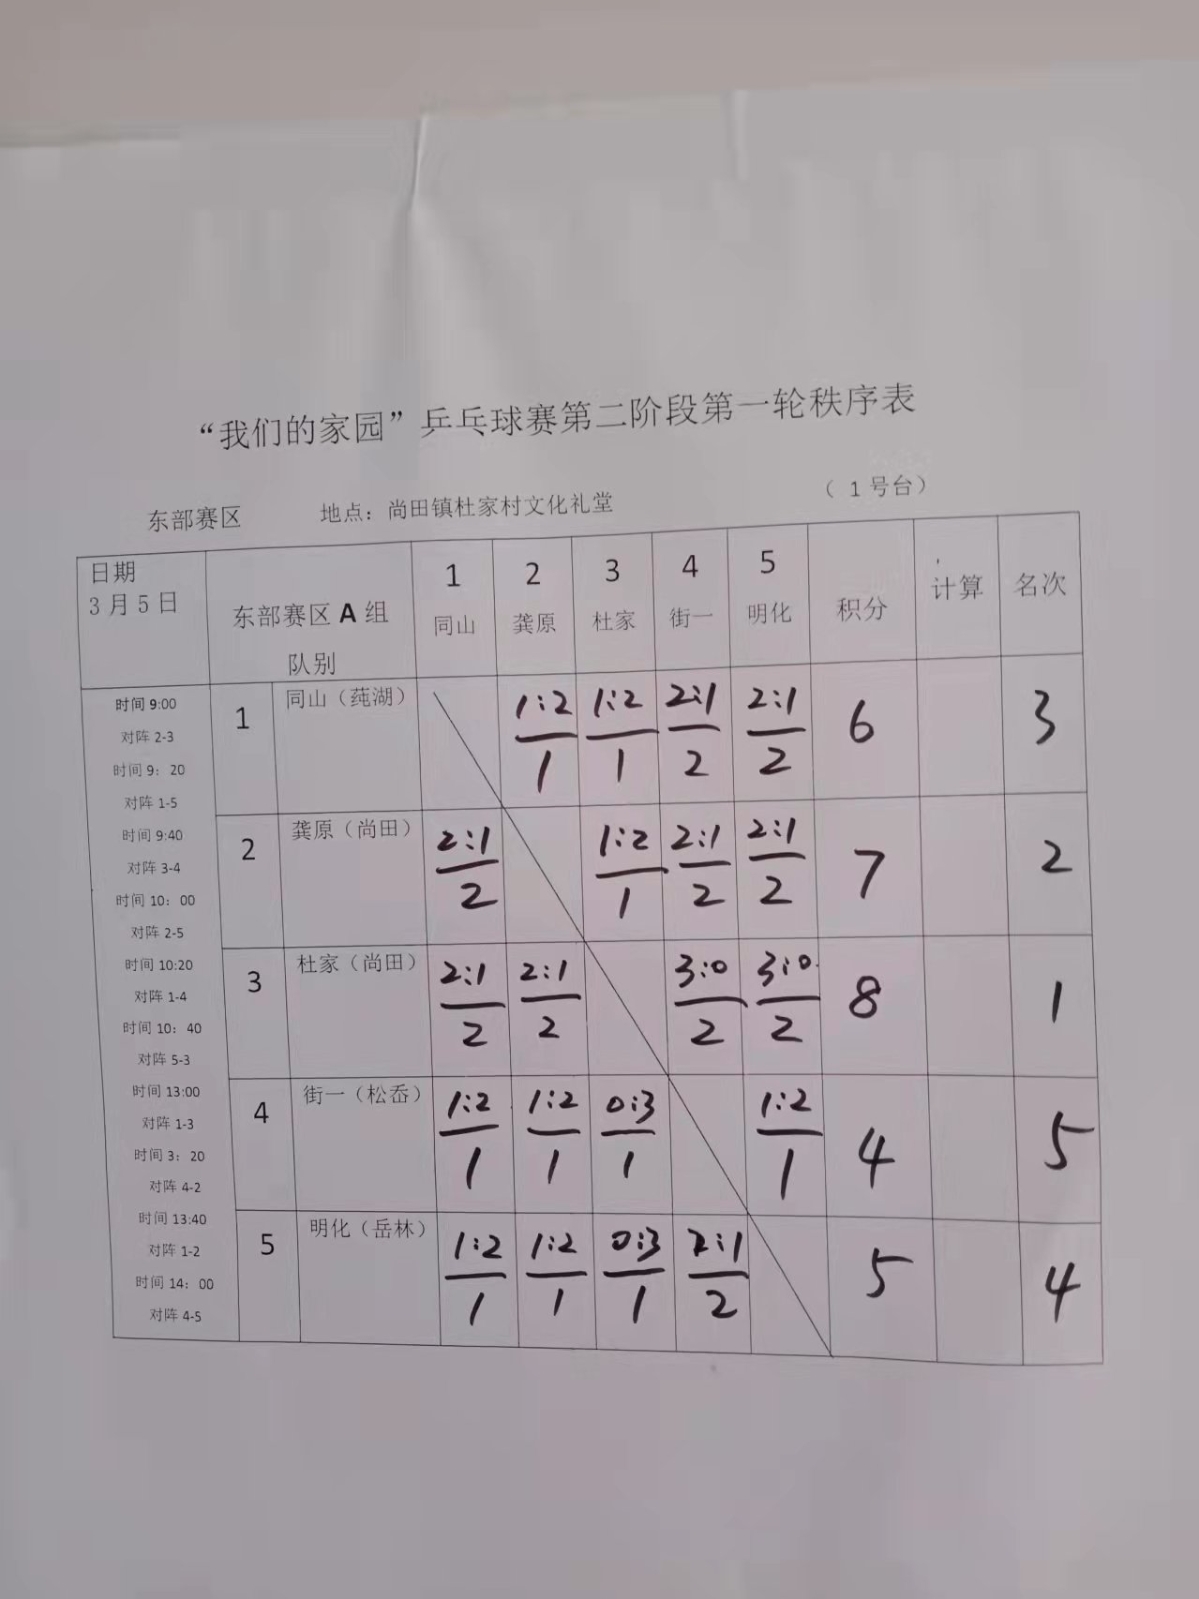 “我们的家园”乒乓球赛第二阶段第一轮秩序表
东部赛区 地点：尚田镇杜家村文化礼堂 （ 1 号台）
日期
3 月 5 日
东部赛区 A 组
队别
1 2 3 4 5
同山 龚原 杜家 街一 明化 积分 计算 名次
时间 9:00
对阵 2-3
时间 9：20
对阵 1-5
时间 9:40
对阵 3-4
时间 10：00
对阵 2-5
时间 10:20
对阵 1-4
时间 10：40
对阵 5-3
时间 13:00
对阵 1-3
时间 3：20
对阵 4-2
时间 13:40
对阵 1-2
时间 14：00
对阵 4-5
1 同山（莼湖） 1:2 1:2 2:1 2:1 6 3
1 1 2 2
2 龚原（尚田） 2:1 1:2 2:1 2:1 7 2
2 1 2 2
3 杜家（尚田） 2:1 2:1 3:0 3:0 8 1
2 2 2 2
4 街一（松岙） 1:2 1:2 0:3 1:2 4 5
1 1 1 1
5 明化（岳林） 1:2 1:2 0:3 2:1 5 4
1 1 1 2